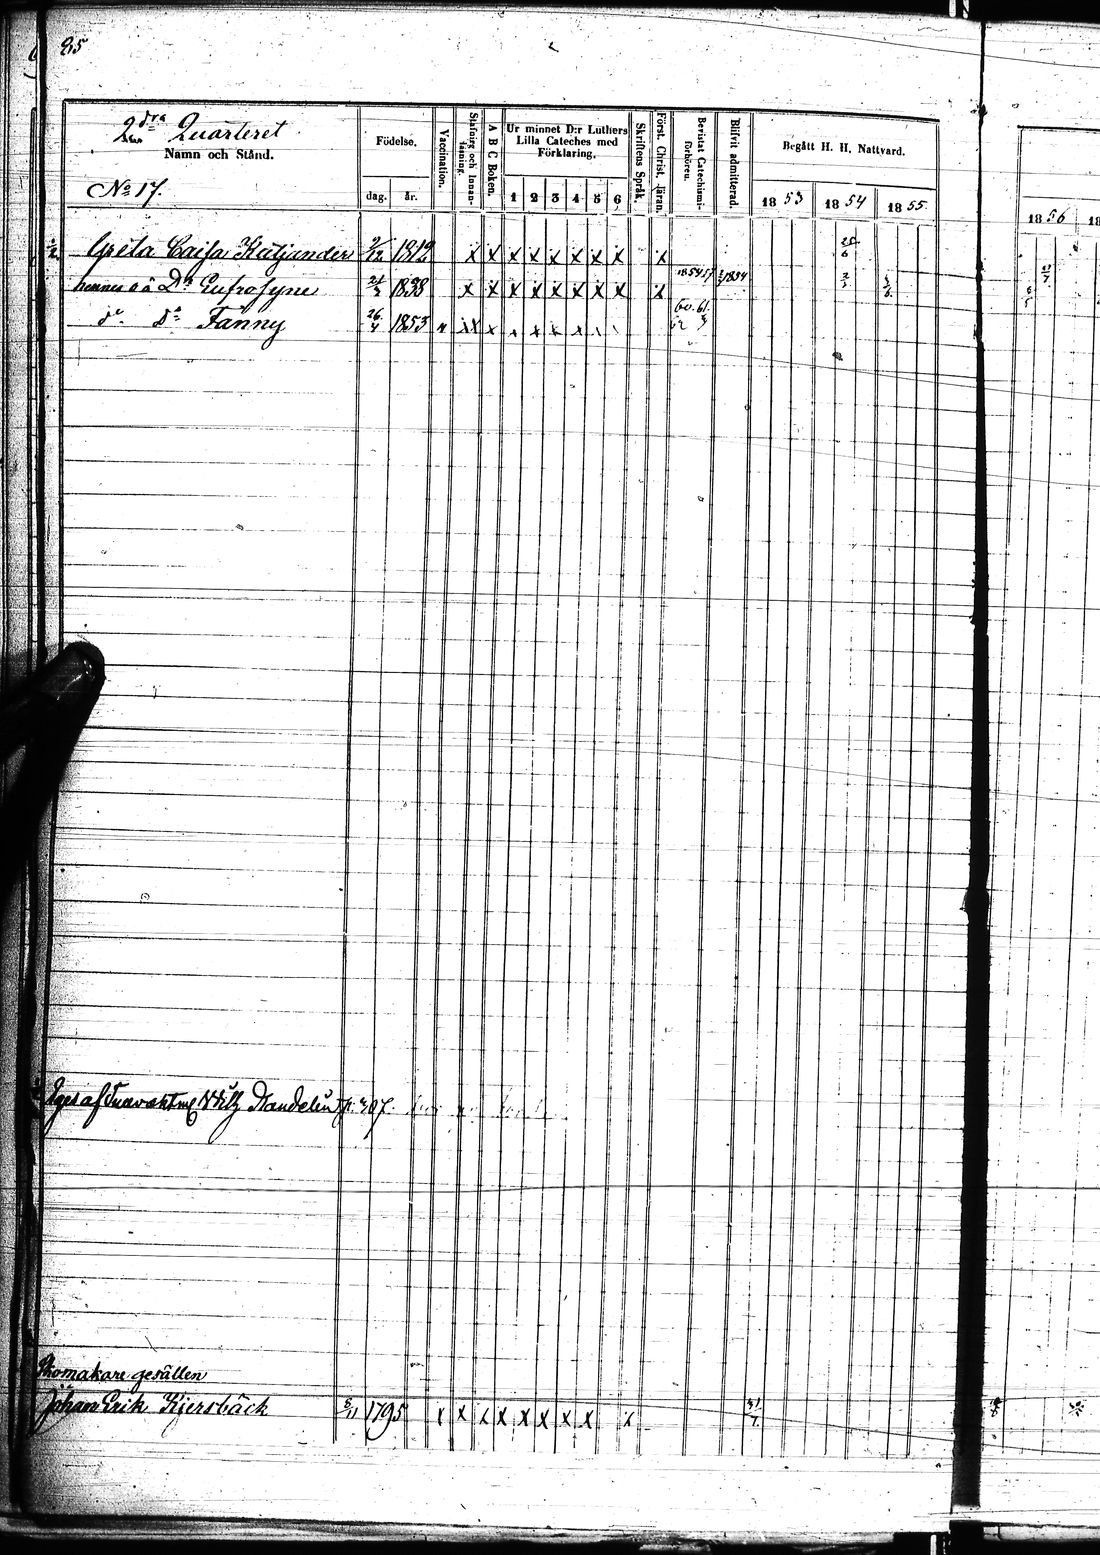 85
2dra Quarteret
Namn och Stånd.
No 17.
Födelse.
dag. år.
Vaccination.
Stafning och Innanläsning.
A B C Boken.
Ur minnet D:r Luthers Lilla Cateches med Förklaring.
1 2 3 4 5 6
Skriftens Språk.
Först. Christ. läran.
Bevistat Catechismiförhören.
Blifvit admitterad.
Begått H. H. Nattvard.
1853 1854 1855.
1856
Greta Caisa 2/12 1812 x x x x x x x x x 25/6
hennes Dr Eufrosyne 21/2 1838 x x x x x x x x x
do Dr Fanny 26/4 1853 x x x x x x x 60. 61. 62
Skomakare gesällen
Johan Erik Kjersbäck 5/11 1795 x x x x x x x x x 31/7